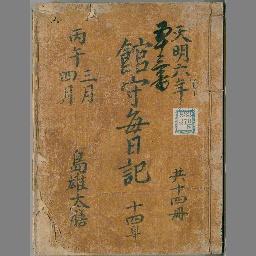 天明六年
館守毎日記
十四
共十四冊
丙午
三月
四月
島雄太膳